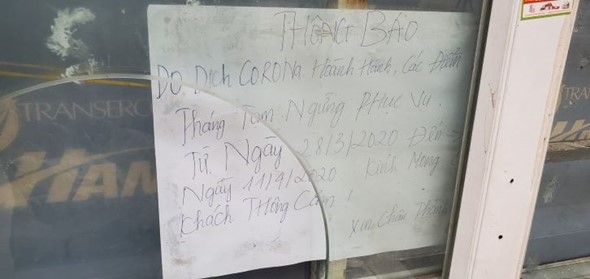 THÔNG BÁO
DO Dịch CORONA Hoành Hành, Các Điểm
Tháng Tạm Ngừng Phục Vụ.
Từ Ngày 28/3/2020 Đến
Ngày 11/4/2020 Kính Mong
Khách Thông Cảm!
Xin Chân Thành
TRANSERCO
HAN